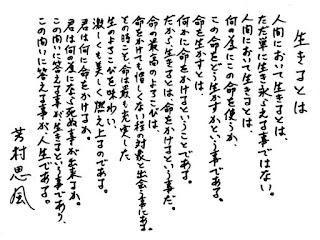 生きるとは
人間において生きるとは、
ただ単に生き永らえる事ではない。
人間において生きるとは、
何の為にこの命を使うか、
この命をどう生かすかという事である。
命を生かすとは、
何かに命をかけるということである。
だから生きるとは命をかけるという事だ。
命の最高のよろこびは、
命をかけても惜しくない程の対象と出会う事にある。
その時こそ、命は最も充実した
生のよろこびを味わい、
激しくも美しく燃え上がるのである。
君は何に命をかけるか。
君は何のためになら死ぬ事が出来るか。
この問いに答える事が生きるという事であり、
この問いに答える事が人生である。
芳村思風